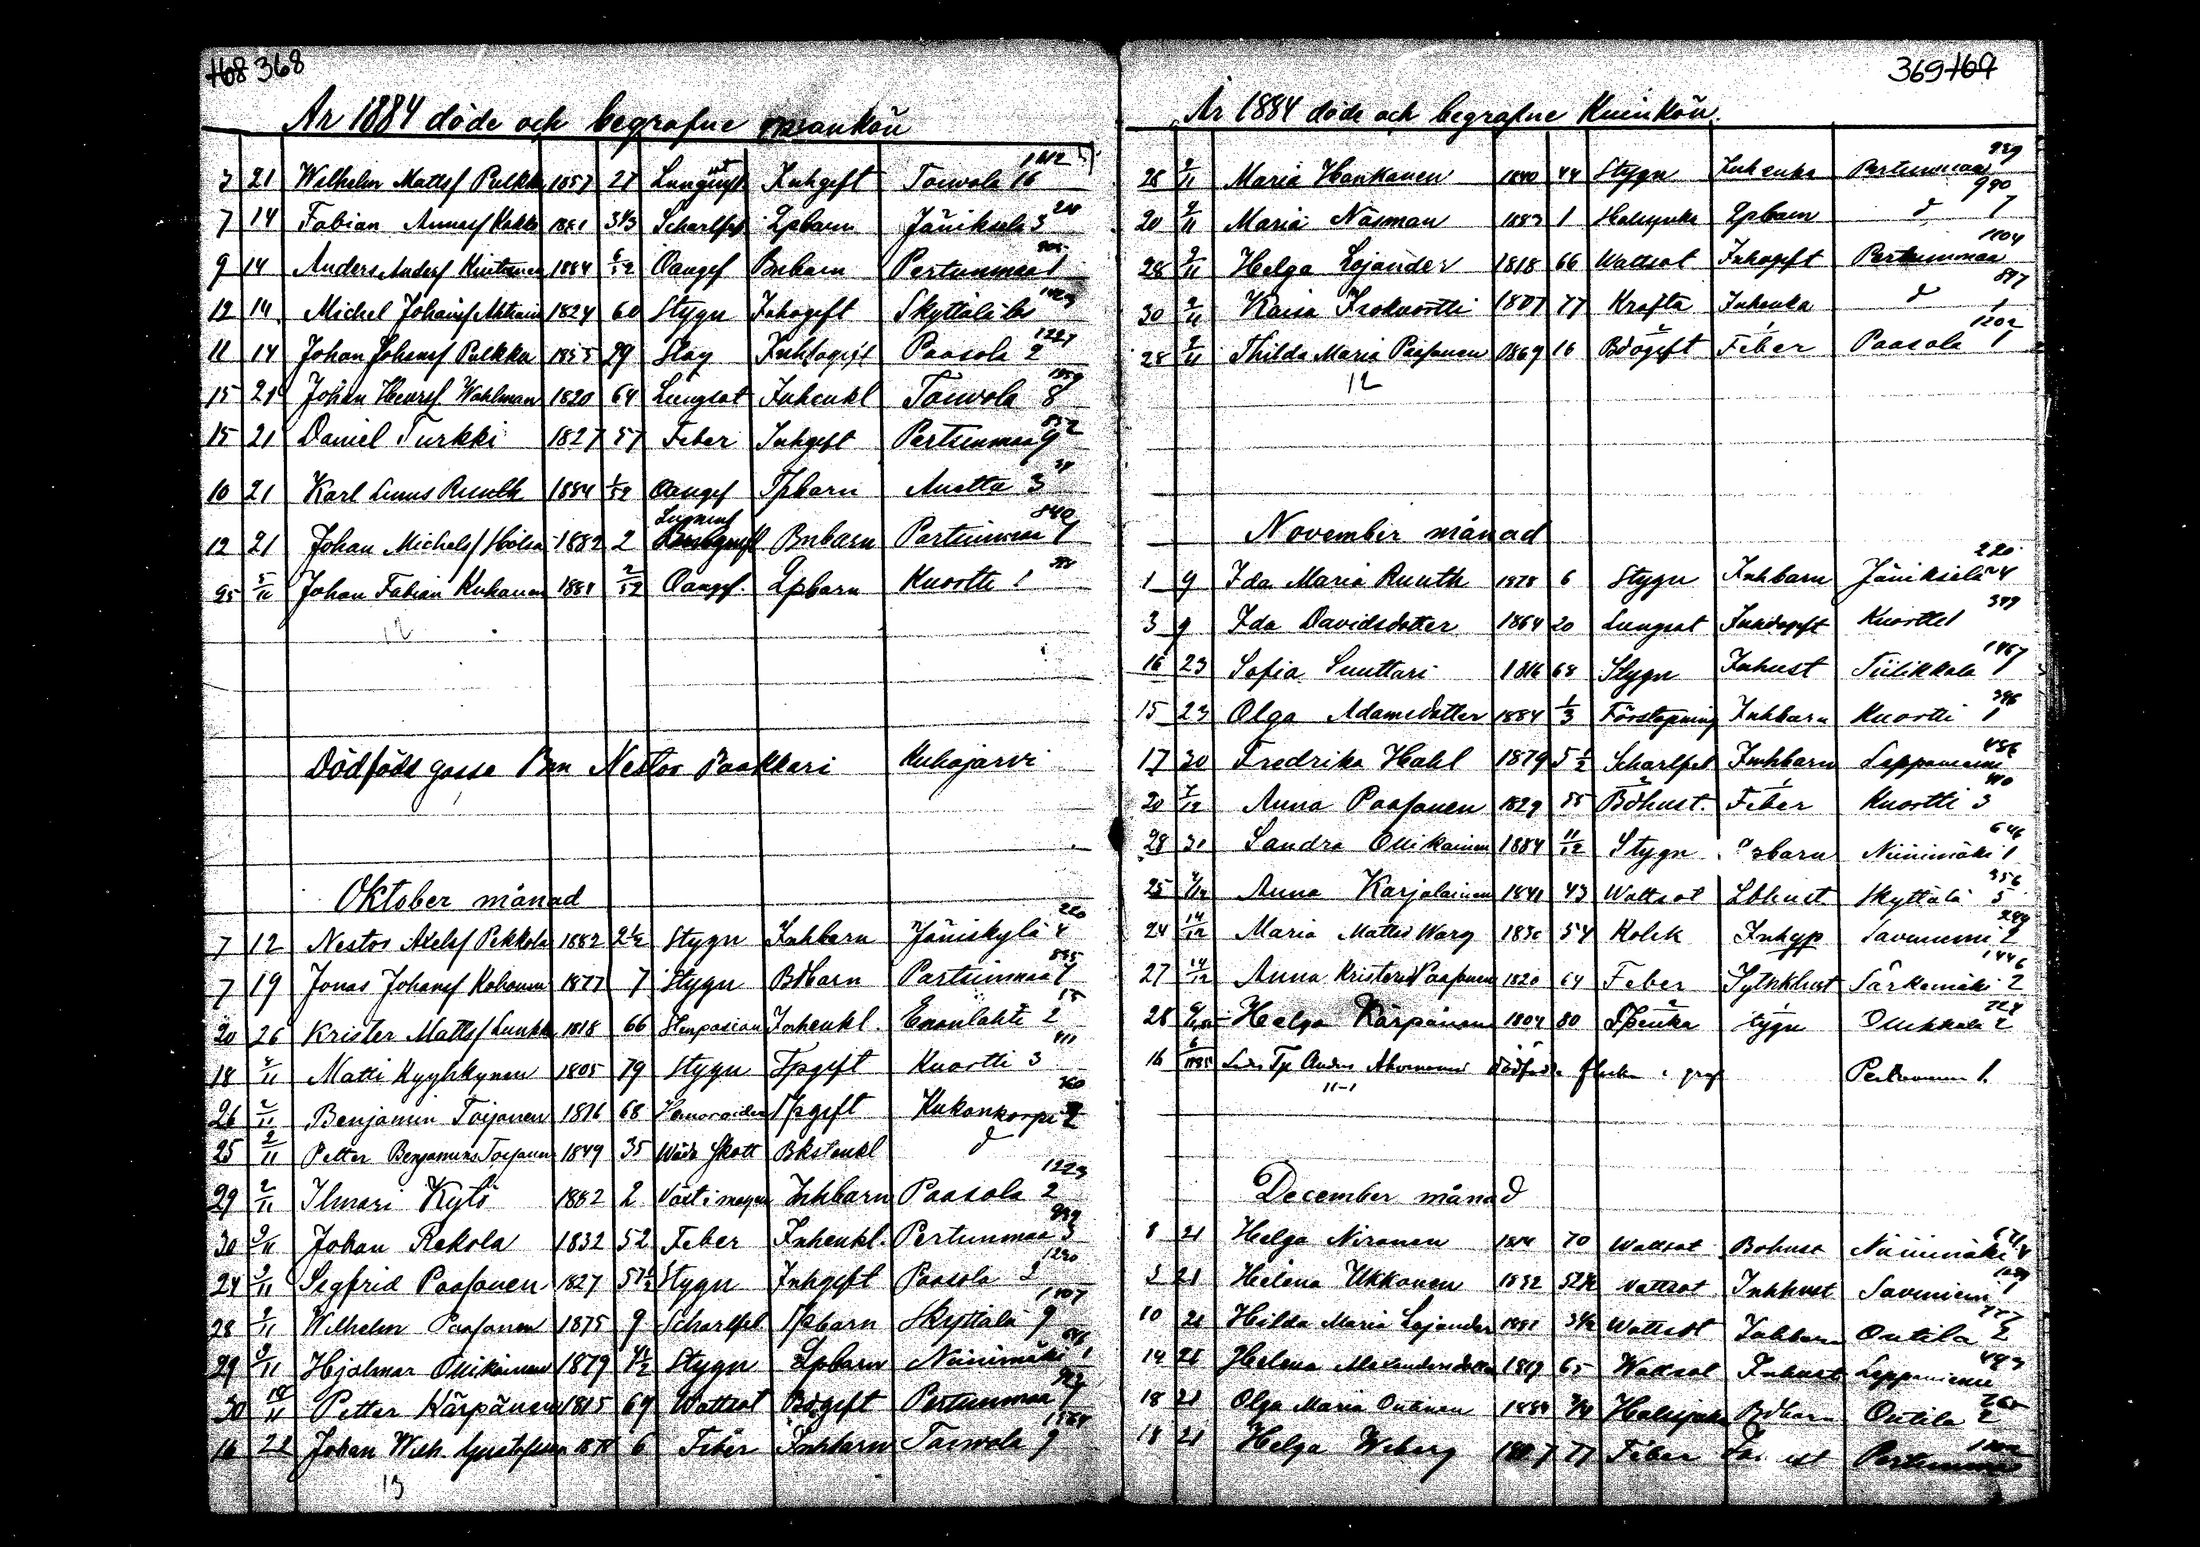 168 368
År 1884 döde och begrafne mankön
3 21 Wilhelm Mattsf Pulkka 1857 27 Lunginf Inhgift Toiwola 16 1612
7 14 Fabian 1881 3 4/3 Scharlfeb Lpbarn Jäniksela 3
9 14 Anders Andersf 1884 Oangef Bnbarn Pertunmaa 1
12 14 Michel Johansf 1824 60 Stygn Inhagift Skyttälä
11 14 Johan Johansf Pulkka 1855 29 Slag Paasola 2 1227
15 21 Johan Henrsf Wahlman 1820 64 Lungsot Inhenkl Toiwola 8
15 21 Daniel Turkki 1827 57 Feber Inhgift Pertunmaa 9 852
10 21 Karl Linus Ruuth 1884 1/52 Oangef Tpbarn Anetta 3
12 21 Johan Michelsf Hölsä 1882 2 Bnbarn Pertunmaa 1 840
25 5/11 Johan Fabian Kuhanen 1884 2/52 Oangef. Lpbarn Kuortti 1
12
Dödfödt gosse Bon Nestor Paakkari Kuhajärvi
Oktober månad
7 12 Nestor Axelsf Pekkola 1882 2 1/2 Stygn Inhbarn Jäniskylä 4 220
7 19 Jonas Johansf 1877 7 Stygn Bdbarn Pertunmaa 7
20 26 Krister Mattsf 1818 66 Inhenkl. Enonlahti 2 15
18 2/11 Matti Kyyhkynen 1805 79 Stygn Tpgift Kuortti 3 411
26 2/11 Benjamin Toijonen 1816 68 Hemoroider Tpgift Kukonkorpi 2
25 2/11 Petter Benjamins Toijonen 1849 35 Wåda Skott d
29 2/11 Ilmari Kytö 1882 2 Växt i magen Inhbarn Paasola 2 1223
30 2/11 Johan Rekola 1832 52 Feber Inhenkl. Pertunmaa 3
24 2/11 Segfrid Paasonen 1827 57 1/2 Stygn Inhgift Paasola 2 1230
28 2/11 Wilhelm Paasonen 1875 9 Scharlfeb Tpbarn Skyttälä 9 1407
29 2/11 Hjalmar Ollikainen 1879 4 1/2 Stygn Lpbarn Niinimäki 1 646
30 18/11 Petter Kärpänen 1815 69 Wattsot Bdgift Pertunmaa 7
16 22 Johan Wilh. Gustafsson 1878 6 Feber Inhbarn Toiwola 9
13
369 169
År 1884 döde och begrafne Kvinkön.
28 2/11 Maria Hankanen 1840 44 Stygn Inhenka Pertunmaa 929
20 2/11 Maria Näsman 1883 1 Halssjuka Lpbarn d 7 990
28 2/11 Helga Lojander 1818 66 Wattsot Inhogift Pertunmaa 1104
30 2/11 Kaisa 1807 77 Kräfta Inhenka d 1 897
28 2/11 Thilda Maria Paasonen 1869 16 Bdogift Feber Paasola 1 1202
12
November månad
1 9 Ida Maria Ruuth 1878 6 Stygn Inhbarn Jäniksela 4 220
3 9 Ida Davidsdotter 1864 20 Lungsot Kuortti 1 379
16 23 Sofia Suuttari 1816 68 Stygn Inhust Tiilikkala 7 1467
15 23 Olga Adamsdotter 1884 1/3 Förstopning Inhbarn Kuortti 1 396
17 30 Fredrika Hahl 1879 5 1/2 Scharlfeb Inhbarn Leppäniemi 486
20 7/12 Anna Paasonen 1829 55 Bdhust. Feber Kuortti 3 440
28 31 Sandra Ollikainen 1884 11/12 Stygn Niinimäki 1 646
25 7/12 Anna Karjalainen 1841 43 Wattsot Lbhust Skyttälä 5 356
24 14/12 Maria Mattsd Warg 1830 54 Kolik Savuniemi 2
27 14/12 Anna Kristersd Paasonen 1820 64 Feber Särkemäki 2 1446
28 Helga Kärpänen 1804 80 Ollikkala 2 728
16 6/1885 Tp 1.
11-1
December månad
8 21 Helga Niranen 1814 70 Wattsot Bohust Niinimäki 4
3 21 Helena Ukkonen 1832 52 1/2 Wattsot Inhhust Savuniemi 7
10 21 Hilda Maria Lojander 1881 3 1/2 Wattsot Inhbarn Outila 2
14 21 Helena Alexandersdotter 1819 65 Wattsot Inhust Leppäniemi 483
18 21 Olga Maria Outinen 1884 Halssjuka Bdbarn Outila 2
18 21 Helga Weberg 1807 77 Feber Pertunmaa